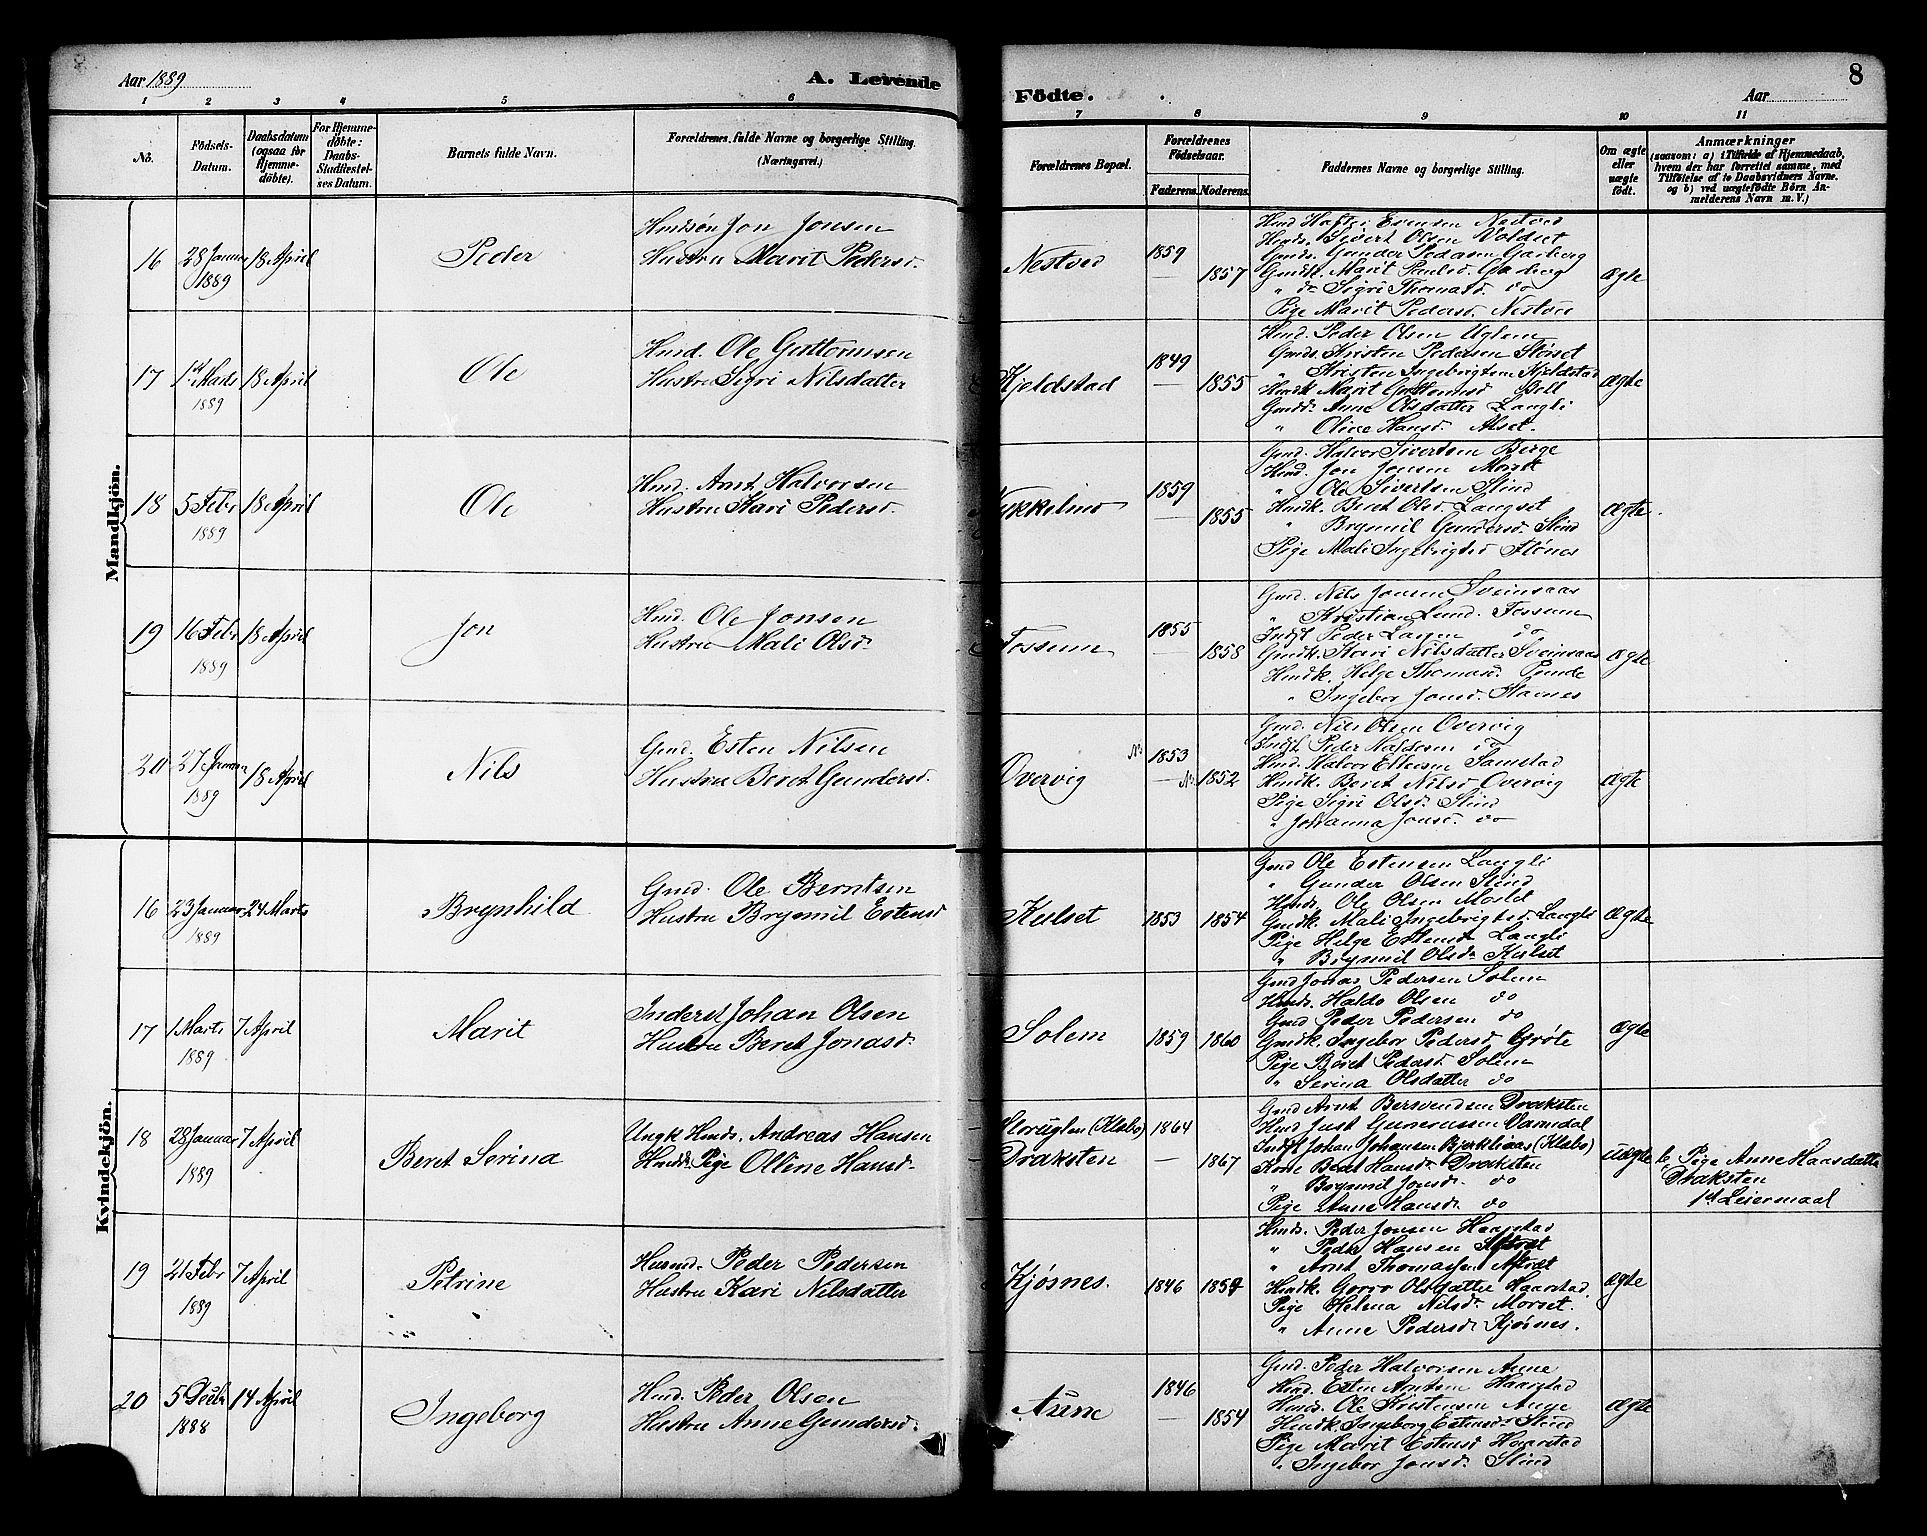 8
Aar 1889
A. Levende
Födte.
Aar
8
1 2 3 4 5 6 7 8 9 10 11
No.
Födsels-
Datum.
Daabsdatum
(ogsaa for
Hjemme-
döbte).
For Hjemme-
döbte:
Daabs-
Stadfæstel-
ses Datum.
Barnets fulde Navn.
Forældrenes fulde Navne og borgerlige Stilling.
(Næringsvei.)
Forældrenes Bopæl.
Forældrenes
Födselsaar.
Faderens. Moderens.
Faddernes Navne og borgerlige Stilling.
Om ægte
eller
uægte
födt.
Anmærkninger
(saasom: a) i Tilfælde af Hjemmedaab,
hvem der har forrettet samme, med
Tilföielse af to Daabsvidners Navne.
og b) ved uægtefödte Börn An-
melderens Navn m. V.)
Mandkjön.
16 28 Januar 1889 18 April Peder
Hmdsøn Jon Jonsen
Hustru Marit Pedersd.
Nestved 1859 1857
Hmd Haftor Estensen Nestved
Hmds. Sivert Olsen Voldset
Gmds. Gunder Pedersen Garberg
Gmdk. Marit Paulsd. Garberg
" do Sigri Thomasd. do
Pige Marit Pedersd. Nestved
ægte
17 1st Marts 1889 18 April Ole
Hmd. Ole Guttormsen
Hustru Sigri Nilsdatter
Kjeldstad 1849 1855
Hmd. Peder Olsen Uglem
Gmds. Kristen Pedersen Störset
" Kristen Ingebrigtsen Kjeldstad
Hmdk. Marit Guttormsd. Bell
Gmdd. Anne Olsdatter Langli
" Oline Hansd. Alset.
ægte
18 5 Febr 1889 18 April Ole
Hmd. Arnt Halvorsen
Hustru Kari Pedersd.
Nykkelmo 1859 1855
Gmd. Halvor Sivertsen Berge
Hmd. Jon Jonsen Moraft
" Ole Sivertsen Stind
Hmdk. Beret Olsd. Langset
" Brynnil Gundersd. Stind
Pige Mali Ingebrigtsd. Flönes
ægte.
19 16 Febr 1889 18 April Jon
Hmd. Ole Jonsen
Hustru Mali Olsd.
Fossum 1855 1858
Gmd. Nils Jonsen Sveinsaas
" Kristian Lund. Fossum
Indst Peder Langen do
Gmdk. Kari Nilsdatter Sveinsaas
Hmdk. Helge Thomasd. Rönde
" Ingebor Jonsd. Stavnes
ægte
20 27 Januar 1889 18 April Nils
Gmd. Esten Nilsen
Hustru Beret Gundersd.
Overvig 1853 1852
Gmd. Nils Olsen Overvig
Indst. Peder Haldosen do
Hmd. Halvor Estensen Samstad
Hmdk. Beret Nilsd Overvig
Pige Sigri Olsd. Stind
" Johanna Jonsd. do
ægte
Kvindekjön.
16 23 Januar 1889 24 Marts Brynhild
Gmd. Ole Berntsen
Hustru Brynnil Estensd
Kulset 1853 1854
Gmd Ole Estensen Langli
" Gunder Olsen Stind
Hmds. Ole Olsen Moslet
Gmdk. Mali Ingebrigtsd. Langli
Pige Helge Estensd. Langli
" Brynnil Olsd. Kulset
ægte
17 1 Marts 1889 7 April Marit
Inderst Johan Olsen
Hustru Beret Jonasd.
Solem 1859 1860
Gmd Jonas Pedersen Solem
Hmds. Haldo Olsen do
Gmd Peder Pedersen do
Gmdk. Ingebor Pedersd. Gröte
Pige Beret Pedersd. Solem
" Serina Olsdatter do
ægte
18 28 Januar 1889 7 April Beret Serina
Ungk Hmds. Andreas Hansen
Hmdd. Pige Olline Hansd.
Storuglen (Klæbo) 1864
Draksten 1867
Gmd Arnt Bersvendsen Draksten
Hmd Just Gunerussen Varmdal
Indst Johan Johansen Bjørkliaas (Klæbo)
Kone Beret Hansd. Draksten
" Brynnil Jonsd. do
Pige Anne Hansd. do
uægte
b, Pige Anne Haasdatter
Draksten
1st Leiermaal
19 21 Febr 1889 7 April Petrine
Husmd. Peder Pedersen
Hustru Kari Nilsdatter
Kjøsnes. 1846 1854
Hmds. Peder Jonsen Haarstad
" Peder Hansen Aftret
" Arnt Thomassen Aftret
Hmdk. Goro Olsdatter Haarstad.
Pige Helena Nilsd. Morset.
" Anne Pedersd. Kjøsnes.
ægte
20 5 Decbr 1888 14 April Ingeborg
Hmd. Peder Olsen
Hustru Anne Gundersd.
Aune 1846 1854
Gmd. Peder Halvorsen Aune
Hmd. Esten Arntsen Haarstad
Hmds. Ole Kristensen Aune
Hmdk. Ingeborg Estensd. Stind
Pige Marit Estensd Haarstad
" Ingebor Jonsd. Stind
ægte